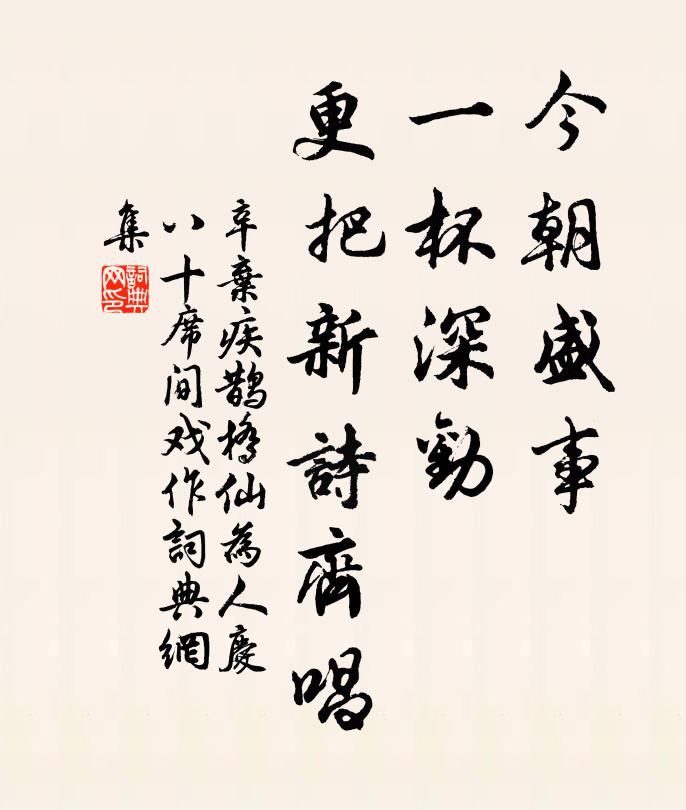 今朝盛事
一杯深勸
更把新詩齊唱
辛棄疾鵲橋仙為人慶
八十席间戏作詞典網
集
詞典网印